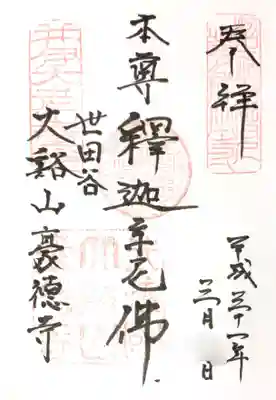 奉拝
平成三十一年
三月 日
本尊 釋迦牟尼佛
世田谷
大谿山 豪德寺